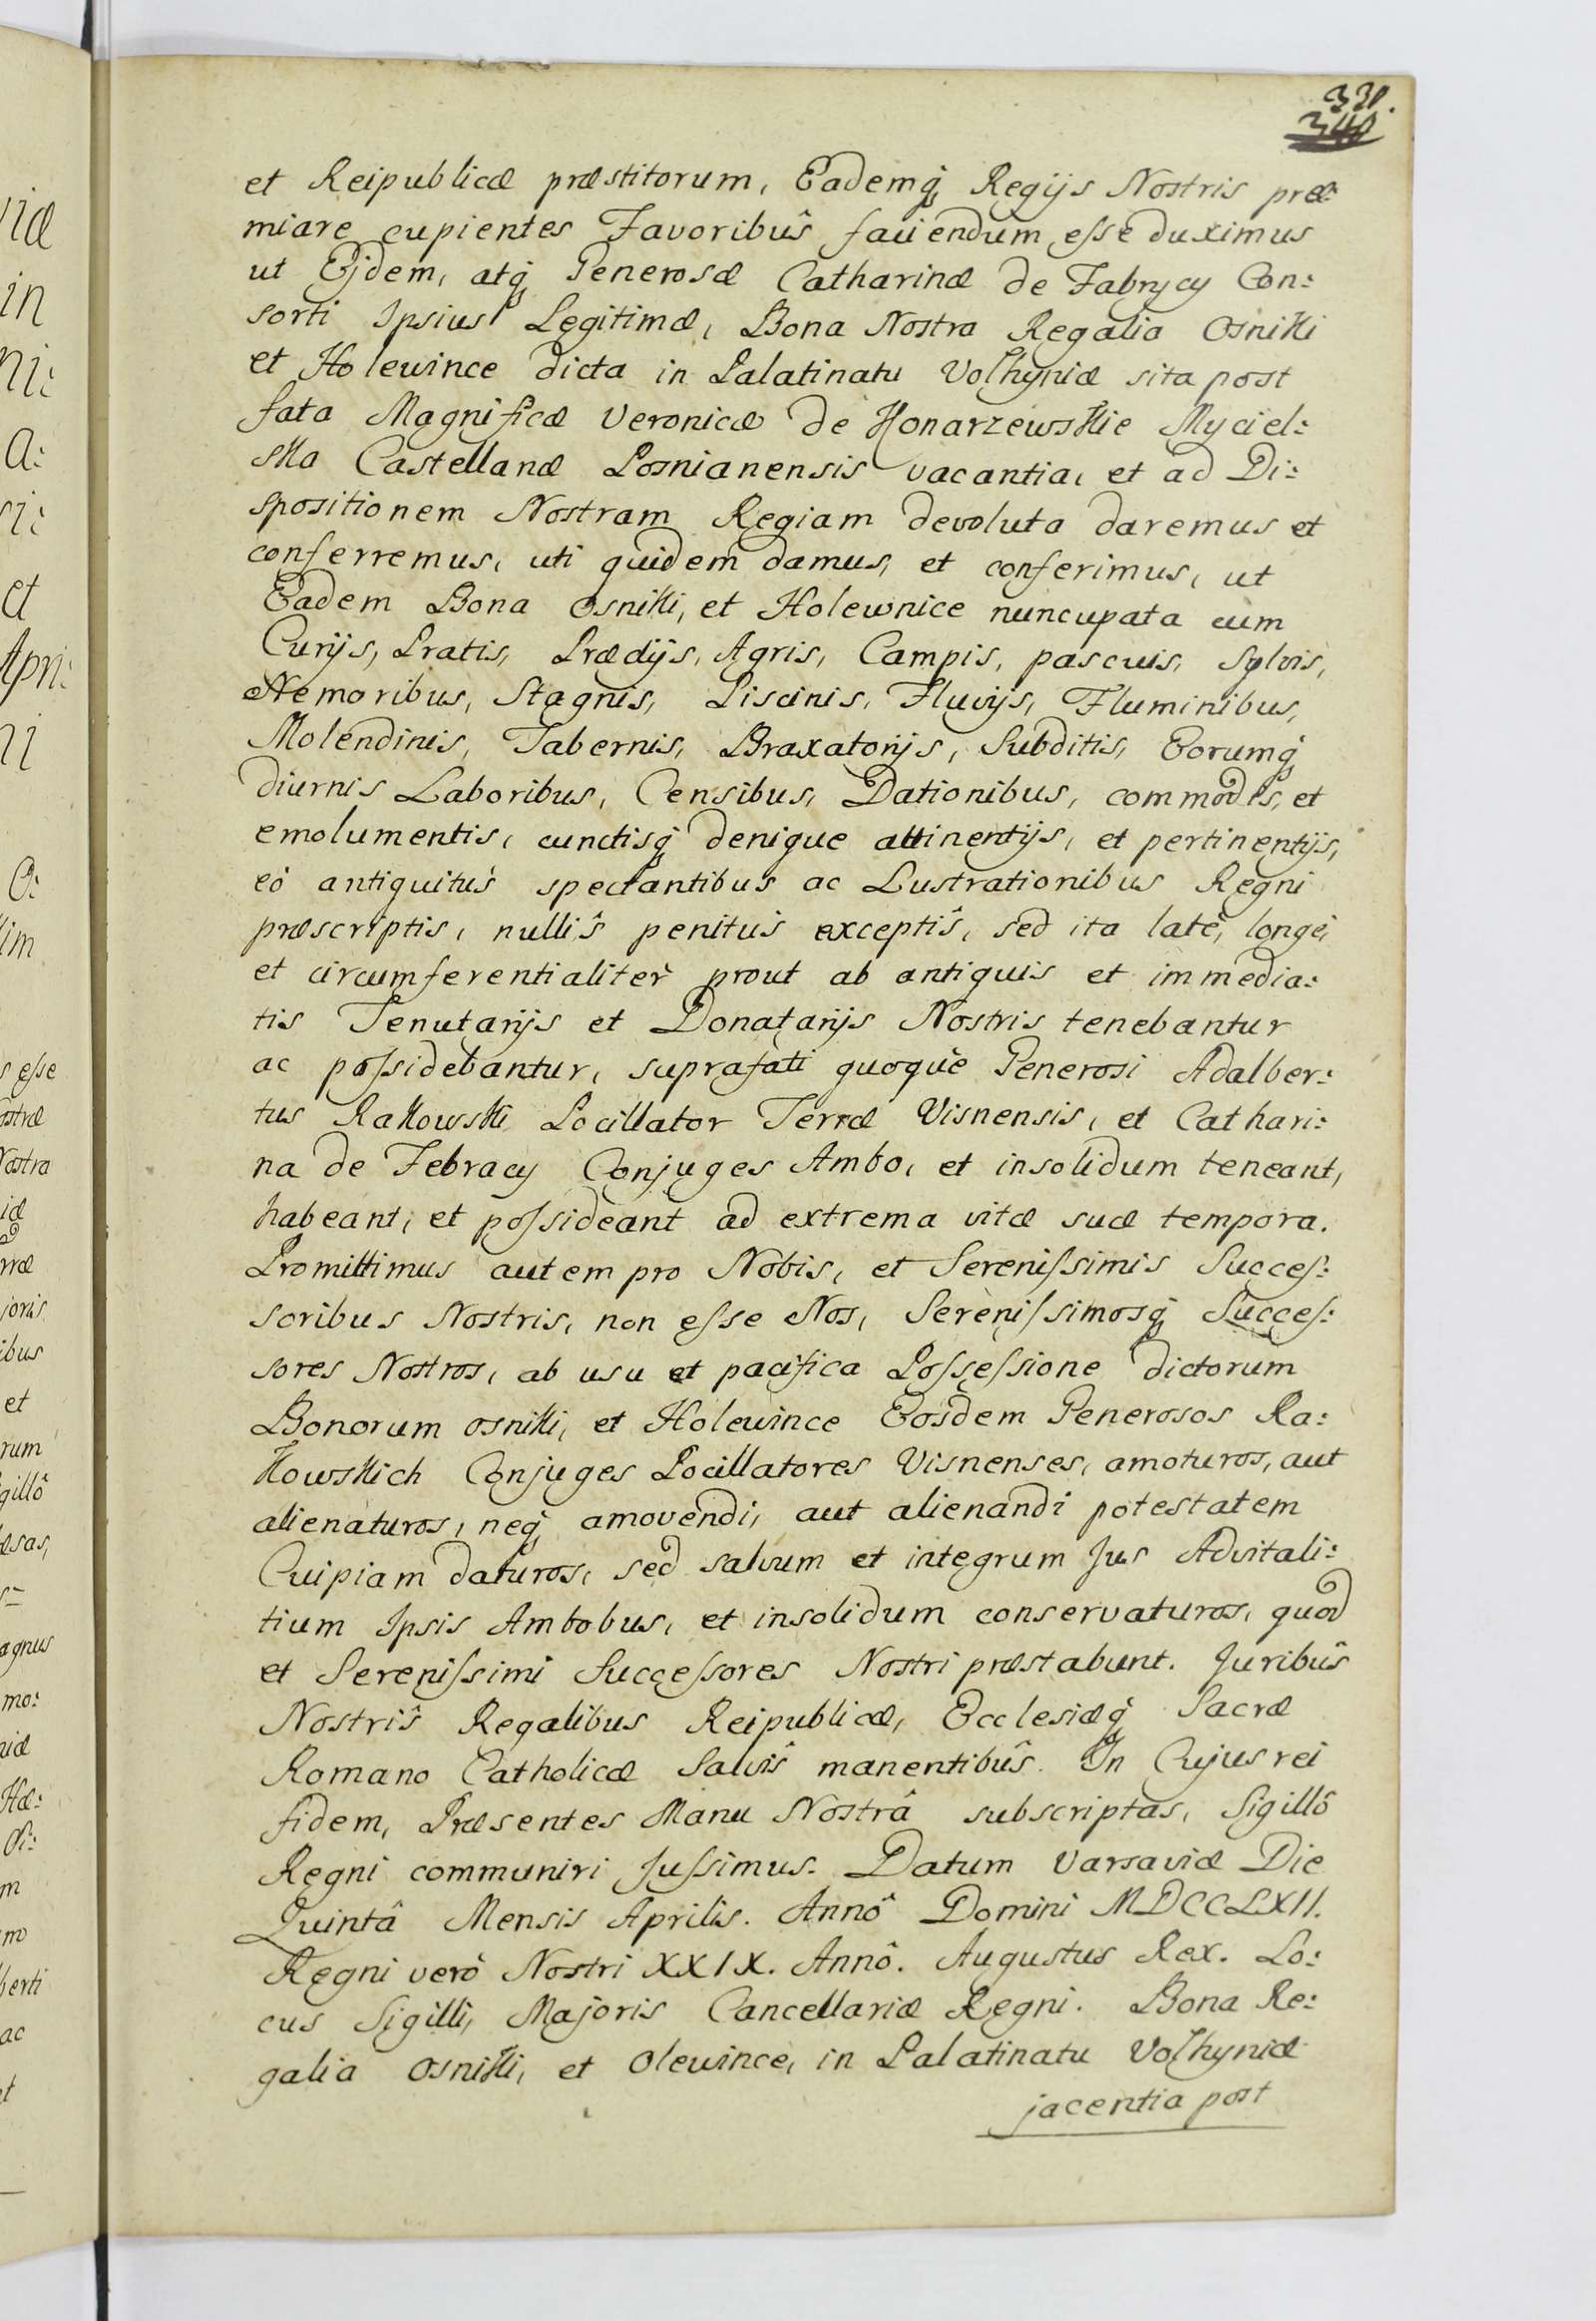 331.
340
et Reipublicæ præstitorum, Eademq́ Regijs Nostris præ:
miare cupientes Favoribuŝ faciendum esse duximus
ut Ejdem, atq́ Generosæ Catharinæ de Fabrycy Con:
sorti Ipsius Legitimæ, Bona Nostra Regalia Osniki
et Holewince dicta in Palatinatu Volhyniæ sita post
fata Magnificæ Veronicæ de Konarzewskie Myciel:
ska Castellanæ Posnianensis vacantia, et ad Di:
spositionem Nostram Regiam devoluta daremus et
conferremus, uti quidem damus, et conferimus, ut
Eadem Bona Osniki, et Holewnice nuncupata cum
Curijs, Pratis, Prædijs, Agris, Campis, pascuis, Sylvis,
Nemoribus, Stagnis, Piscinis, Fluvijs, Fluminibus,
Molendinis, Tabernis, Braxatorijs, Subditis, Eorumq́
diurnis Laboribus, Censibus, Dationibus, commodis, et
emolumentis, cunctisq́ denique attinentijs, et pertinentijs,
eò antiquitùs spectantibus ac Lustrationibus Regni
præscriptis, nulliŝ penitùs exceptiŝ, sed ita latè, longè,
et circumferentialitèr prout ab antiquis et immedia:
tis Tenutarijs et Donatarijs Nostris tenebantur
ac possidebantur, suprafati quoquè Generosi Adalber:
tus Rakowski Pocillator Terræ Visnensis, et Cathari:
na de Febracy Conjuges Ambo, et insolidum teneant,
habeant, et possideant ad extrema vitæ suæ tempora.
Promittimus autem pro Nobis, et Serenissimis Succes:
soribus Nostris, non esse Nos, Serenissimosq́ Succes:
sores Nostros, ab usu et pacifica Possessione dictorum
Bonorum Osniki, et Holewince Eosdem Generosos Ra:
kowskich Conjuges Pocillatores Visnenses, amoturos, aut
alienaturos, neq́ amovendi, aut alienandi potestatem
Cuipiam daturos, sed salvum et integrum Jus Advitali:
tium Ipsis Ambobus, et insolidum conservaturos, quod
et Serenissimi Successores Nostri præstabunt. Juribuŝ
Nostriŝ Regalibus Reipublicæ, Ecclesiæq́ Sacræ
Romano Catholicæ Salviŝ manentibuŝ. In Cujus rei
fidem, Præsentes Manu Nostrâ subscriptas, Sigillô
Regni communiri Jussimus. Datum Varsaviæ Die
Quintâ Mensis Aprilis. Annô Domini MDCCLXII.
Regni verò Nostri XXIX. Annô. Augustus Rex. Lo:
cus Sigilli, Majoris Cancellariæ Regni. Bona Re:
galia Osniki, et Olewince, in Palatinatu Volhyniæ
jacentia post